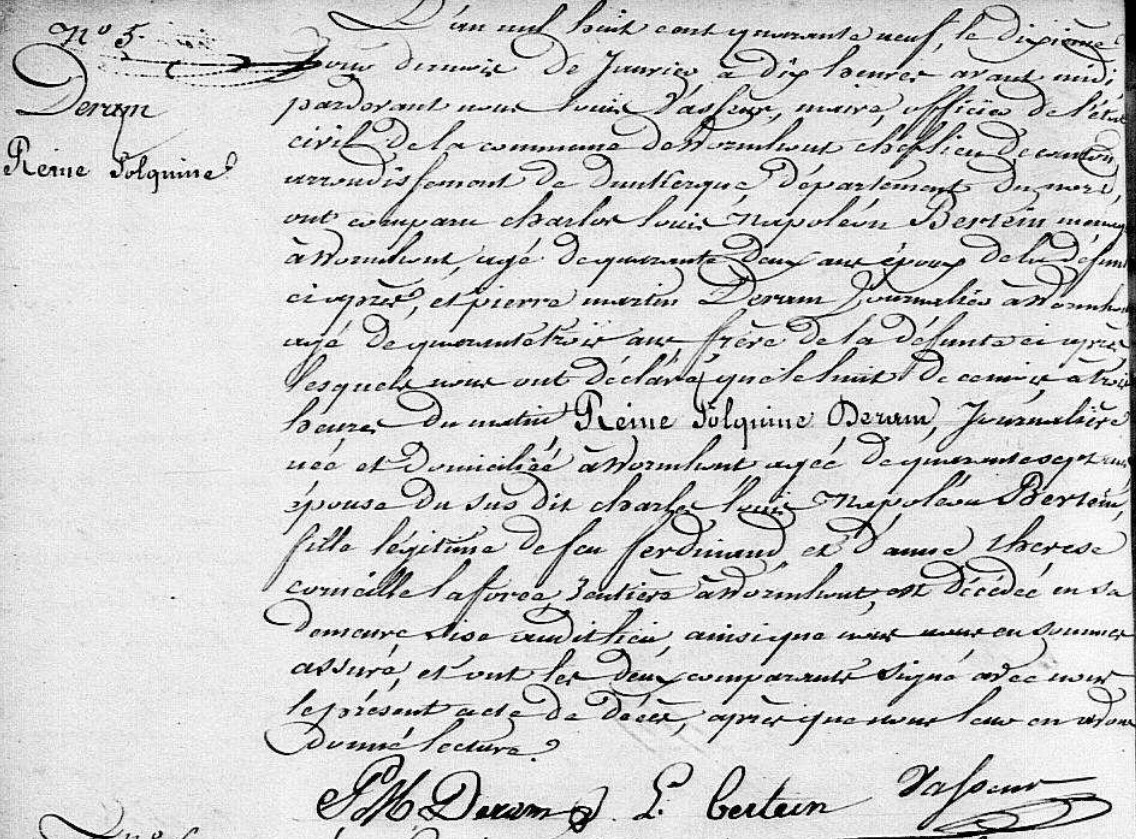 N° 5
Deram
Reine Folquine
L'an mil huit cent quarante neuf, le dixième
jour du mois de Janvier à dix heures avant midi,
pardevant nous Louis Vasseur, maire, officier de l'état
civil de la commune de Wormhout chef lieu de canton,
arrondissement de Dunkerque, département du nord,
ont comparu charles louis Napoléon Bertein
à Wormhout, agé de quarante deux ans époux de la défunte
ci après, et pierre martin Deram Journalier à Wormhout
agé de quarante trois ans frère de la défunte ci après
lesquels nous ont déclaré que le huit de ce mois à trois
heures du matin Reine Folquine Deram, Journalière
née et domiciliée à Wormhout agée de quarante sept ans,
épouse du sus dit charles louis Napoléon Bertein,
fille légitime de feu ferdinand et d'anne therese
corneille laforce, rentière à Wormhout, est décédée en sa
demeure sise audit lieu, ainsi que nous nous en sommes
assuré, et ont les deux comparants signé avec nous
le présent acte de décès, après que nous leur en avons
donné lecture.
PM Deram L. bertein Vasseur